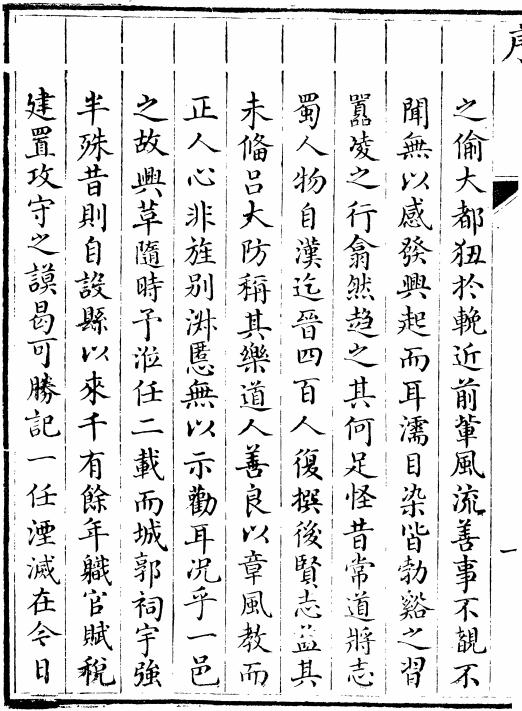 序
一
之偷大都狃於輓近前輩風流善事不覩不
聞無以感發興起而耳濡目染皆勃谿之習
嚚凌之行翕然趋之其何足怪昔常道將志
蜀人物自漢迄晉四百人復撰後賢志益其
未偹吕大防稱其樂道人善良以章風教而
正人心非旌别淑慝無以示勸耳况乎一邑
之故興革隨時予涖任二載而城郭祠宇強
半殊昔則自設縣以來千有餘年職官賦稅
建置攻守之謨曷可勝記一任湮滅在今日